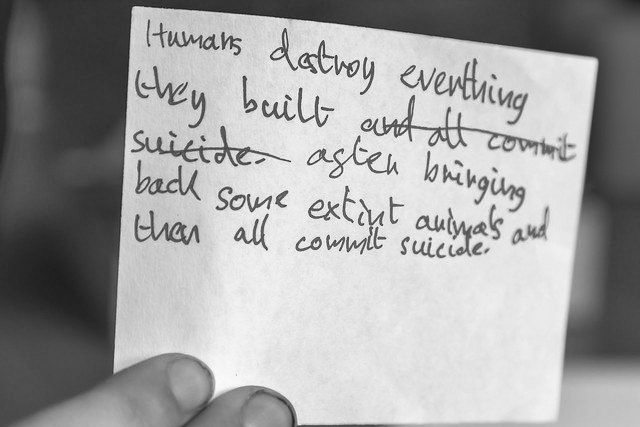 Humans destroy everthing
they built and all commit
suicide. after bringing
back some extint animals and
then all commit suicide.